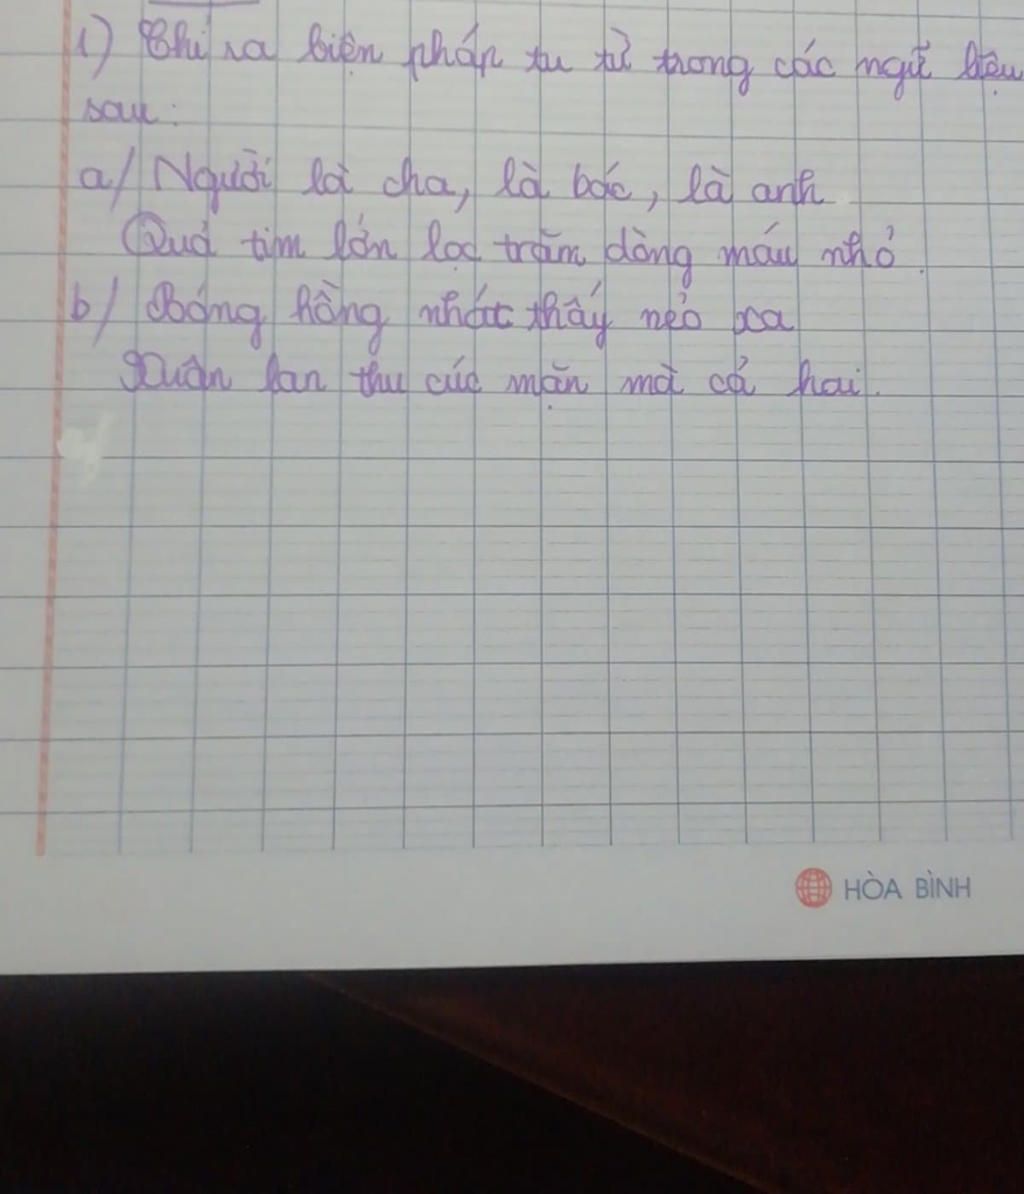 1) Chỉ ra biện pháp tu từ trong các ngữ liệu
sau:
a/ Người là cha, là bác, là anh
Quả tim lớn lọc trăm dòng máu nhỏ.
b/ Bóng hồng nhác thấy nẻo xa
Xuân lan thu cúc mặn mà cả hai.
HÒA BÌNH